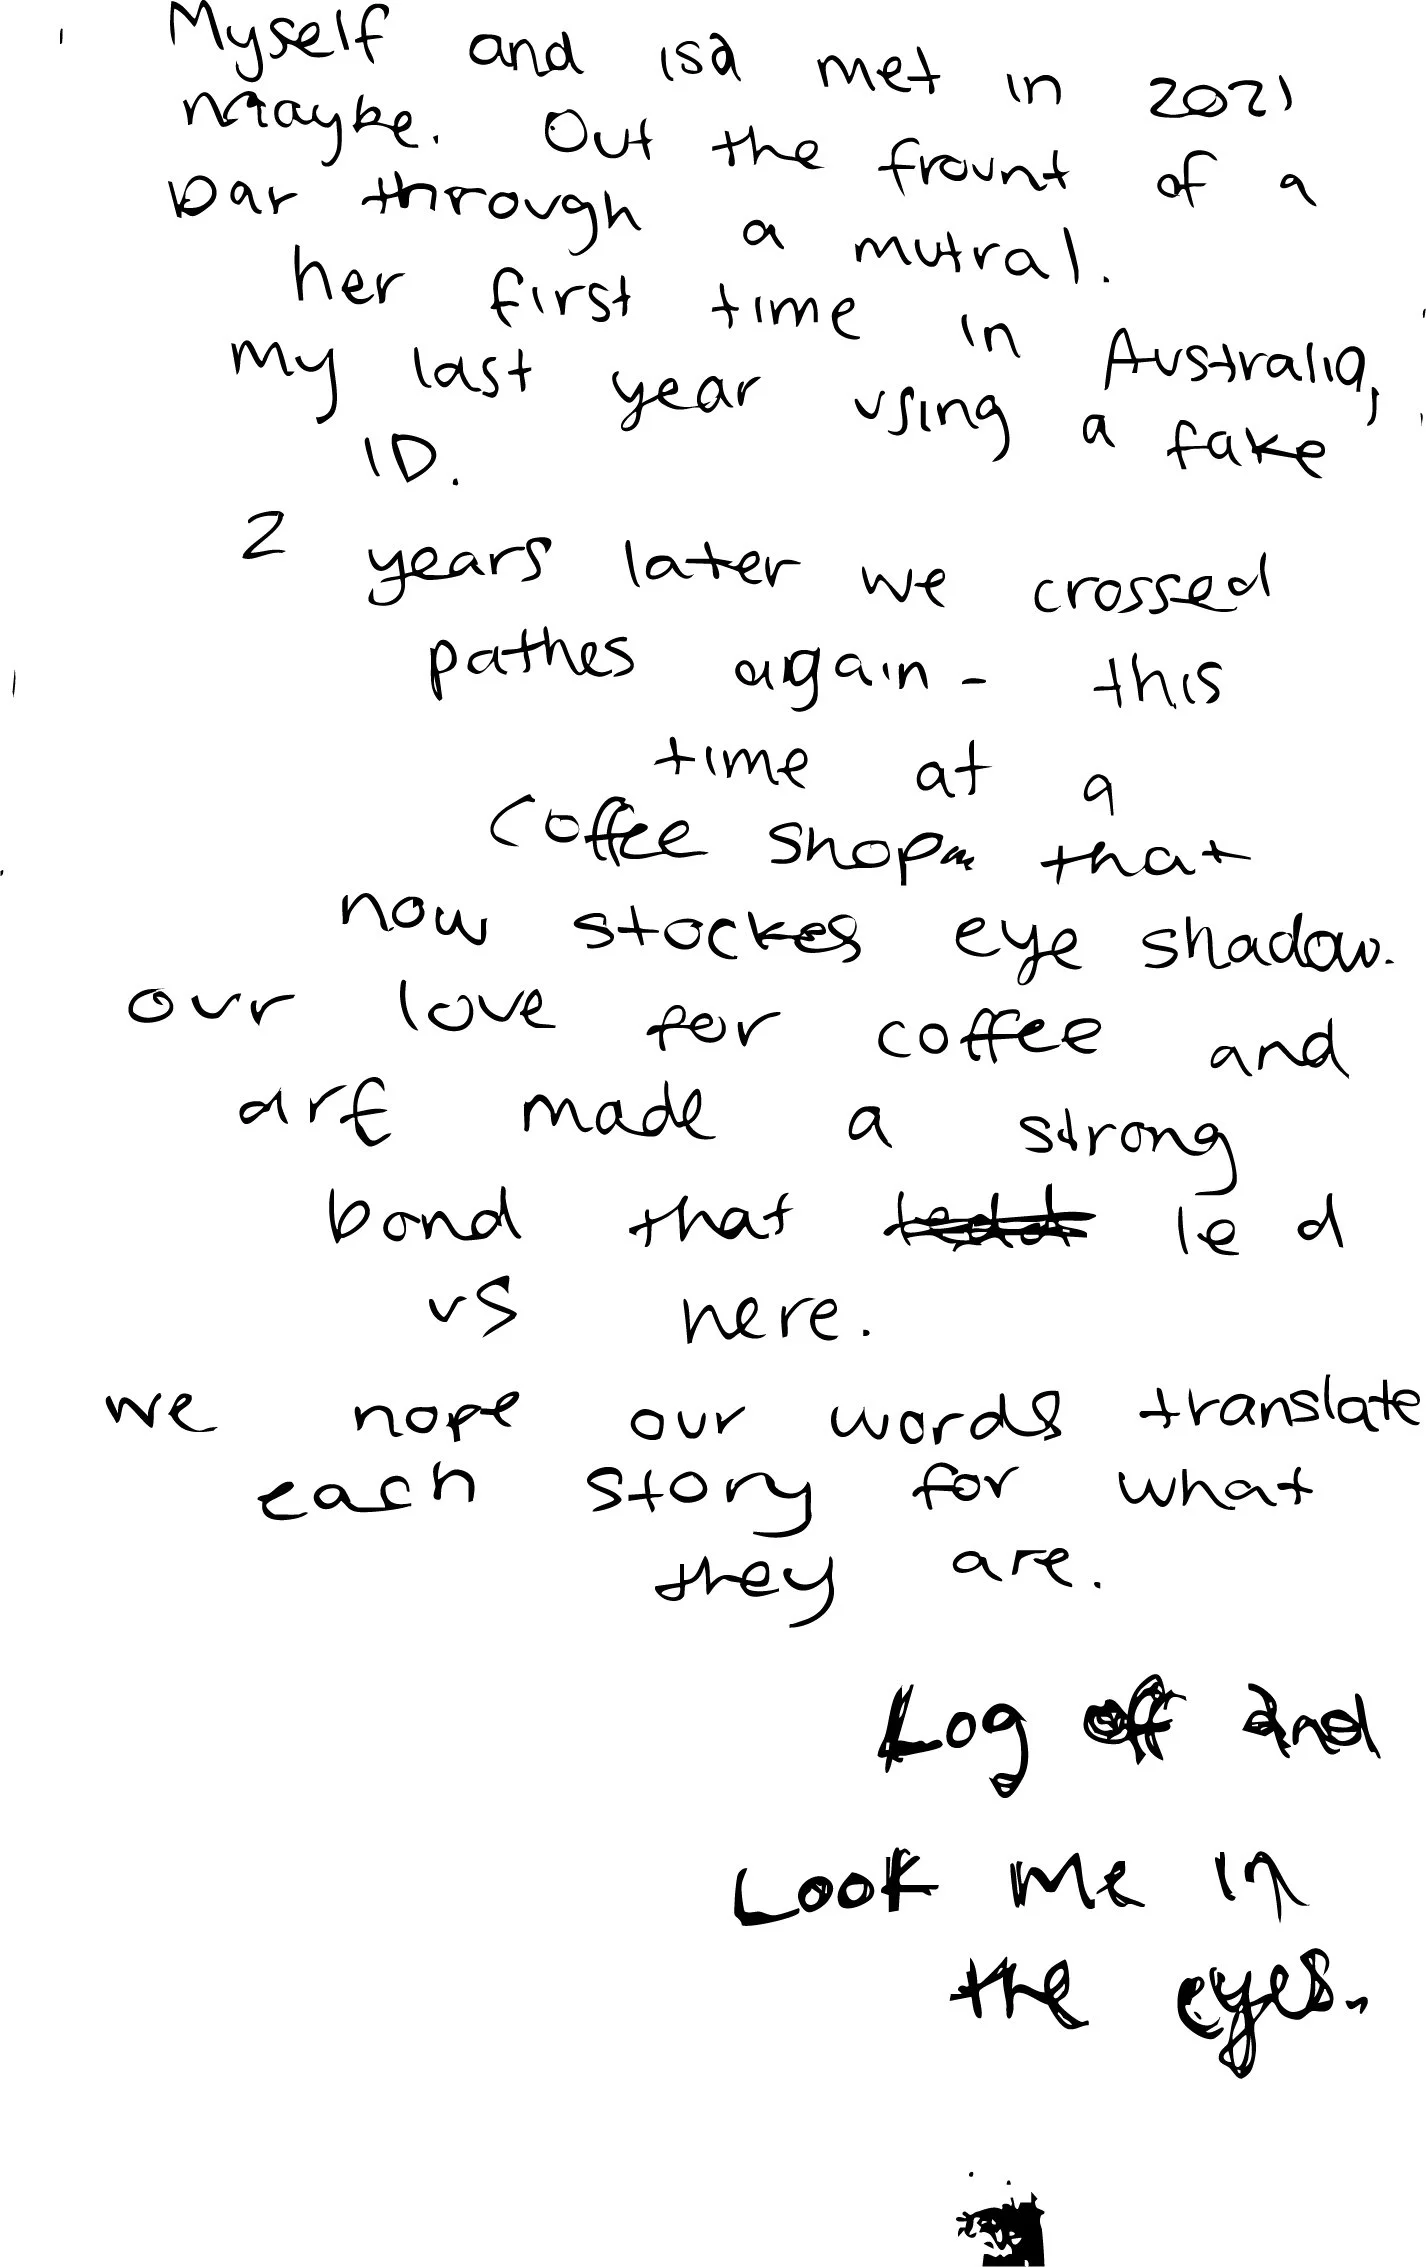 Myself and isa met in 2021
maaybe. Out the frount of a
bar through a mutral.
her first time in Australia,
my last year using a fake
ID.
2 years later we crossed
pathes again - this
time at a
coffee shop that
now stockes eye shadow.
our love for coffee and
art made a strong
bond that led
us here.
we hope our words translate
each story for what
they are.
Log off and
Look me in
the eyes.